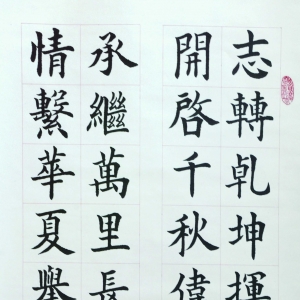 志轉乹坤揮
開啓千秋偉
承繼萬里長
情繫華夏舉